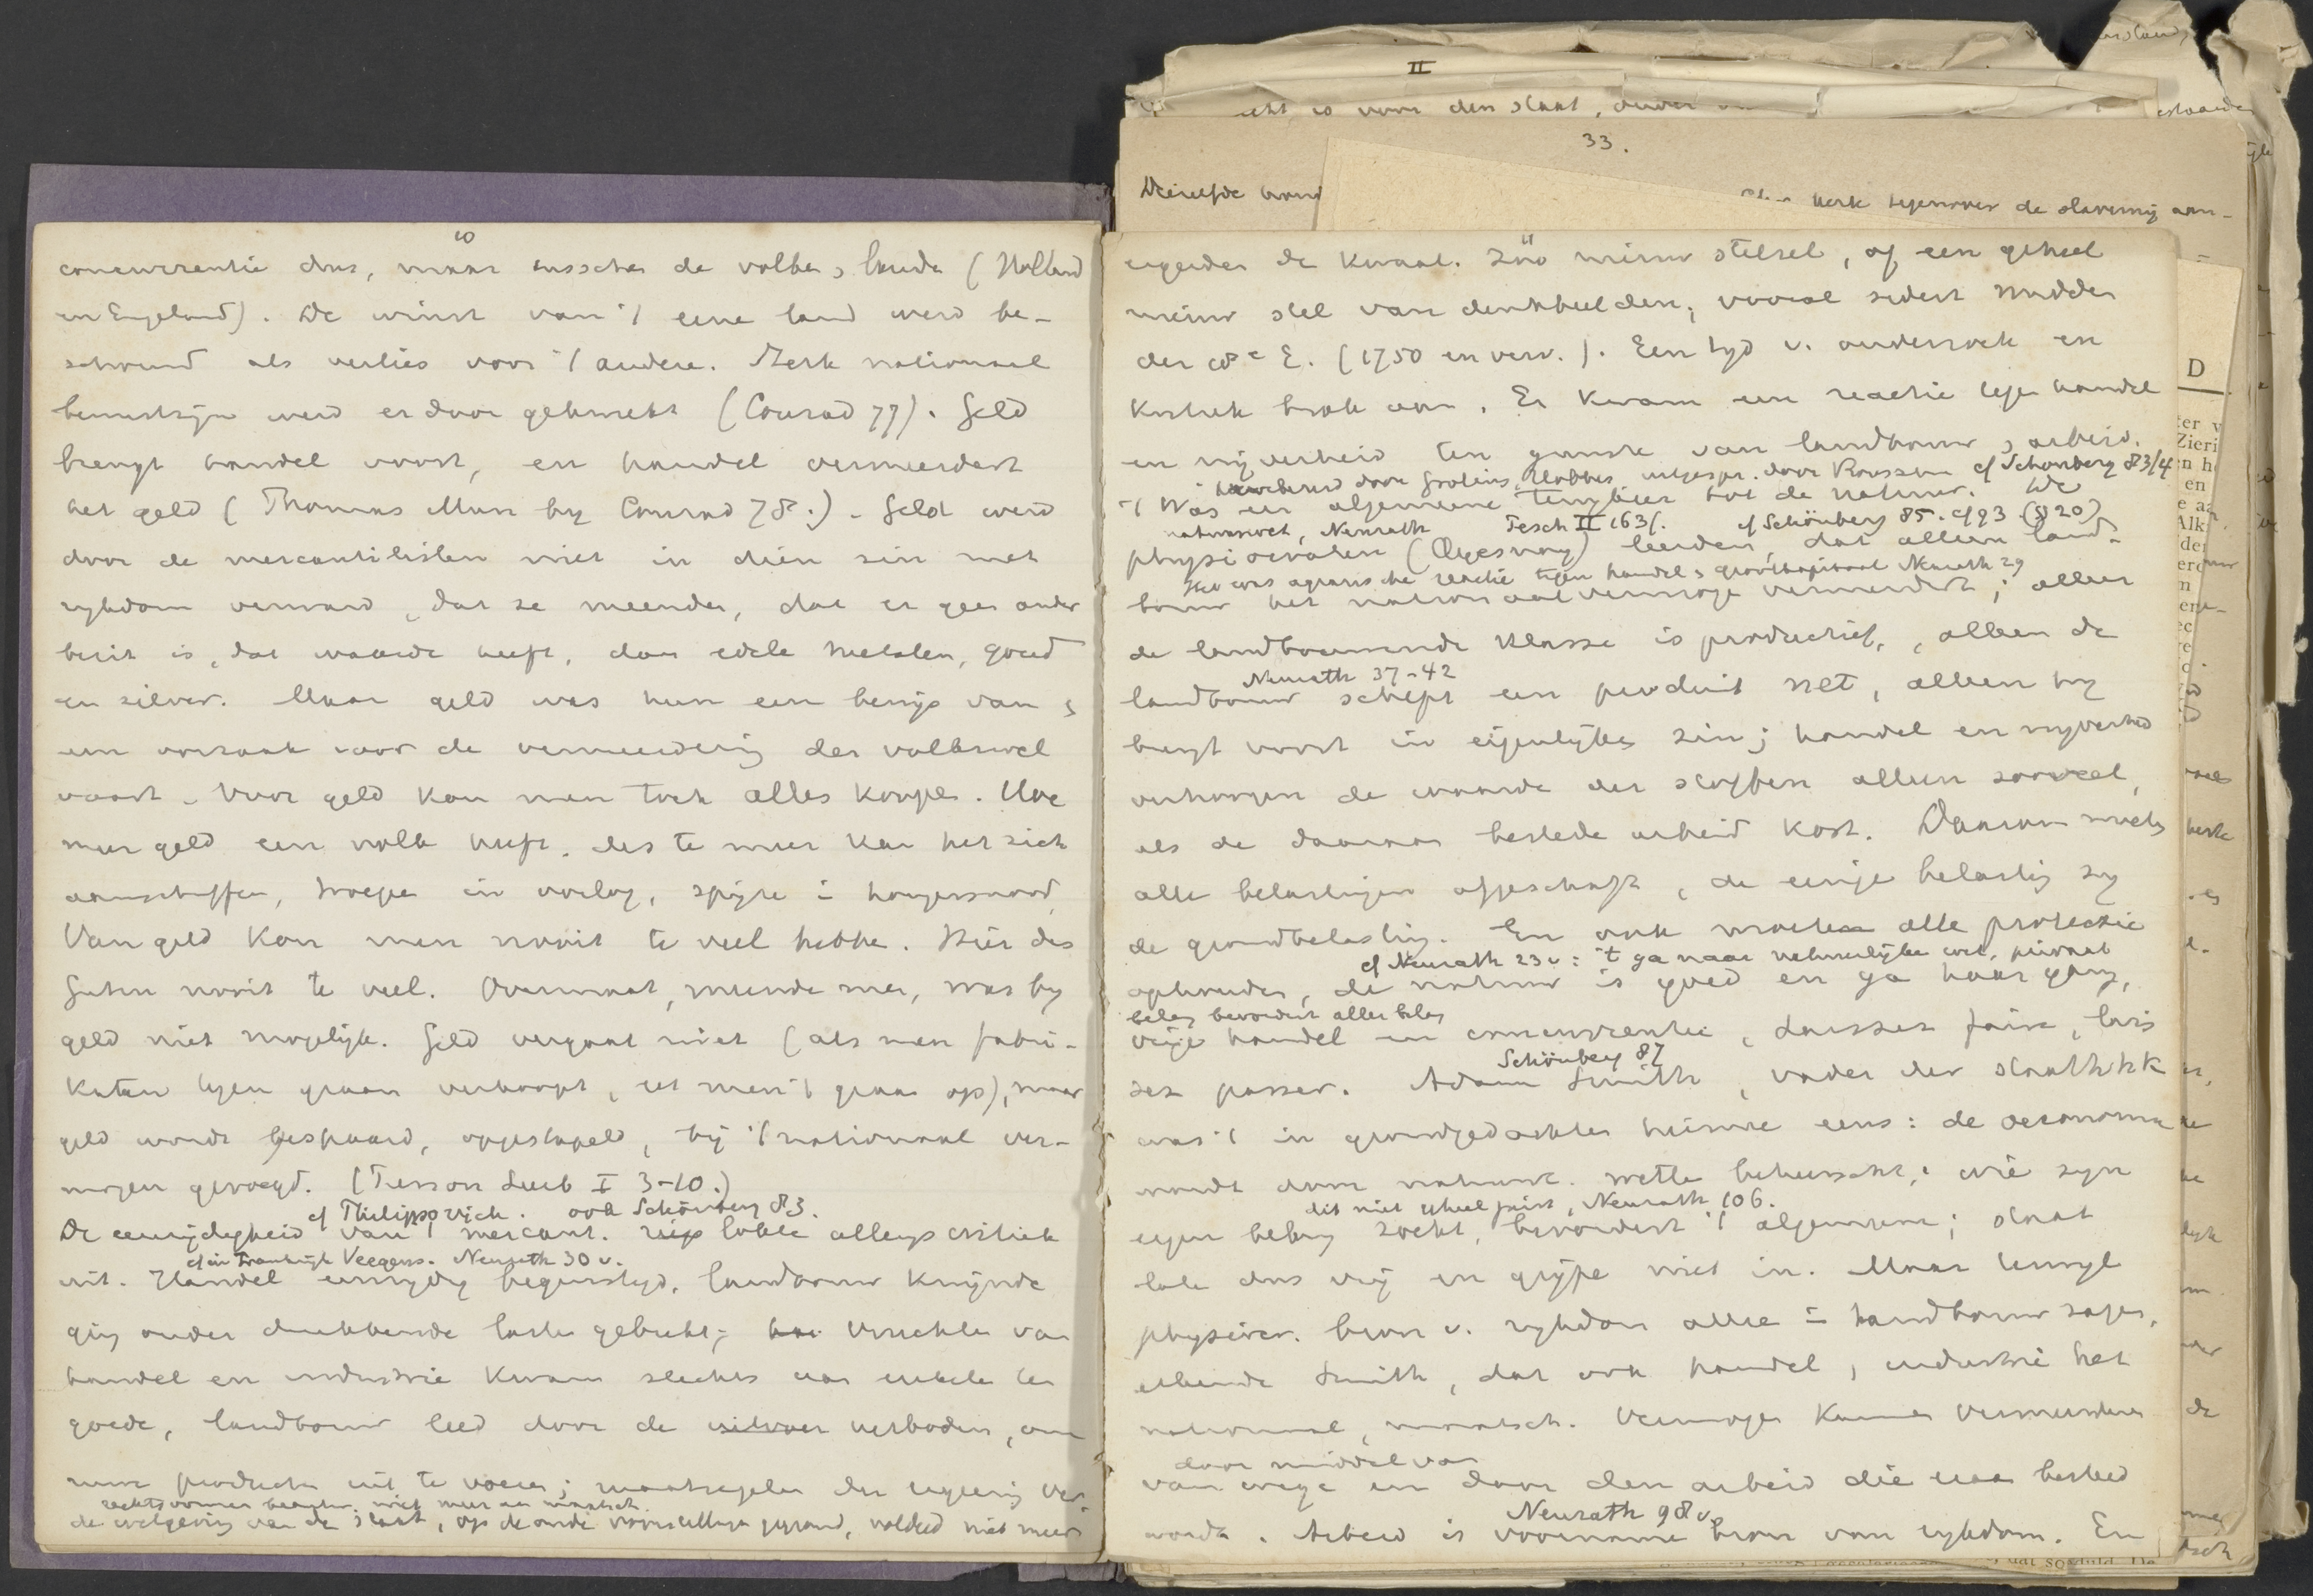 10
concurrentie dus, maar tusschen de volken, landen (Holland
en Engeland). De winst van 't eene land werd be-
schouwd als verlies voor 't andere. Sterk nationaal
bewustzijn werd er door gekweekt (Conrad 77). Geld
brengt handel voort, en handel vermeerdert
het geld (Thomas Mun by Conrad 78.). Geld werd
door de mercantilisten niet in dien zin met
rykdom verward, dat ze meenden, dat er geen ander
bezit is, dat waarde heeft, dan edele metalen, goud
en zilver. Maar geld was hun een bewijs van &
een oorzaak voor de vermeerdering der volkswel
vaart. Voor geld kan men toch alles koopen. Hoe
meer geld een volk heeft, des te meer kan het zich
aanschaffen, troepen in oorlog, spijze in hongersnood,
Van geld kan men nooit te veel hebben. Hier des
Guten nooit te veel. Overmaat, meende men, was by
geld niet mogelijk. Geld vergaat niet (als men fabri-
katen tegen graan verkoopt, eet men 't graan op), maar
geld wordt bespaard, opgestapeld, bij 't nationaal ver-
mogen gevoegd. (Treson Leeb I 3-10.)
cf Philippovich. ook Schönberg 83.
De eenzijdigheid van 't mercant. riep lokte allengs critiek
cf in Frankrijk Veegens. Neurath 30 v.
uit. Handel eenzydig begunstigd, landbouw kwijnde
ging onder drukkende lasten gebukt; Vruchten van
handel en industrie kwam slechts aan enkelen ten
goede, landbouw leed door de uitvoer verboden, om
ruwe producten uit te voeren; maatregelen der regeering ver-
niet meer aan maatsch.
de wetgeving van de staat, op de oude voorstellingen gegrond, voldeed niet meer
11
ergerden de kwaal. Zóó nieuw stelsel, of een geheel
nieuw stel van denkbeelden, vooral sedert midden
der 18e E. (1750 en verv.). Een tyd v. onderzoek en
kritiek brak aan. Er kwam een reactie tegen handel
en nijverheid ten gunste van landbouw, arbeid.
door Grotius, Hobbes, uitgespr. door Rousseau cf Schonberg 83/4
't Was een algemeene terugkeer tot de natuur. De
natuurwet, Neurath Pesch II 163/. cf Schönberg 85. cf 93 (§ 20)
physiocraten (Quesnay) leerden, dat alleen land-
Het was agrarische reactie tegen handel & grootkapitaal Neurath 29
bouw het nationaal vermogen vermeerdert; alleen
de landbouwende klasse is productief, alleen de
Neurath 37-42
landbouw schept een produit net, alleen hy
brengt voort in eigenlyken zin; handel en nyverheid
verhoogen de waarde der stoffen alleen zooveel,
als de daaraan bestede arbeid kost. Daarom moeten
alle belastingen afgeschaft, de eenige belasting zy
de grondbelasting. En ook moeten alle protectie
cf Neurath 23 v: 't ga naar natuurlijke wet, privaat
ophouden, de natuur is goed en ga haar gang,
belang bevordert aller belang
vrije handel en concurrentie, laissez faire, lais
Schönberg 87
sez passer. Adam Smith, vader der staathhk
was 't in grondgedachten hiermee eens: de oeconomie
wordt door natuurl. wetten beheerscht; wie zyn
dit niet geheel juist, Neurath 106.
eigen belang zoekt, bevordert 't algemeene; staat
late dus vrij en grijpe niet in. Maar terwyl
physiocr. bron v. rykdom alleen in landbouw zagen,
erkende Smith, dat ook handel, industrie het
nationaal, maatsch. vermogen kunnen vermeerderen
door middel van
van wege en door den arbeid die eraan besteed
Neurath 98 v.
wordt. Arbeid is voorname bron van rykdom. En
II
33.
Dezelfde
kerk tegenover de slavernij aan-
D